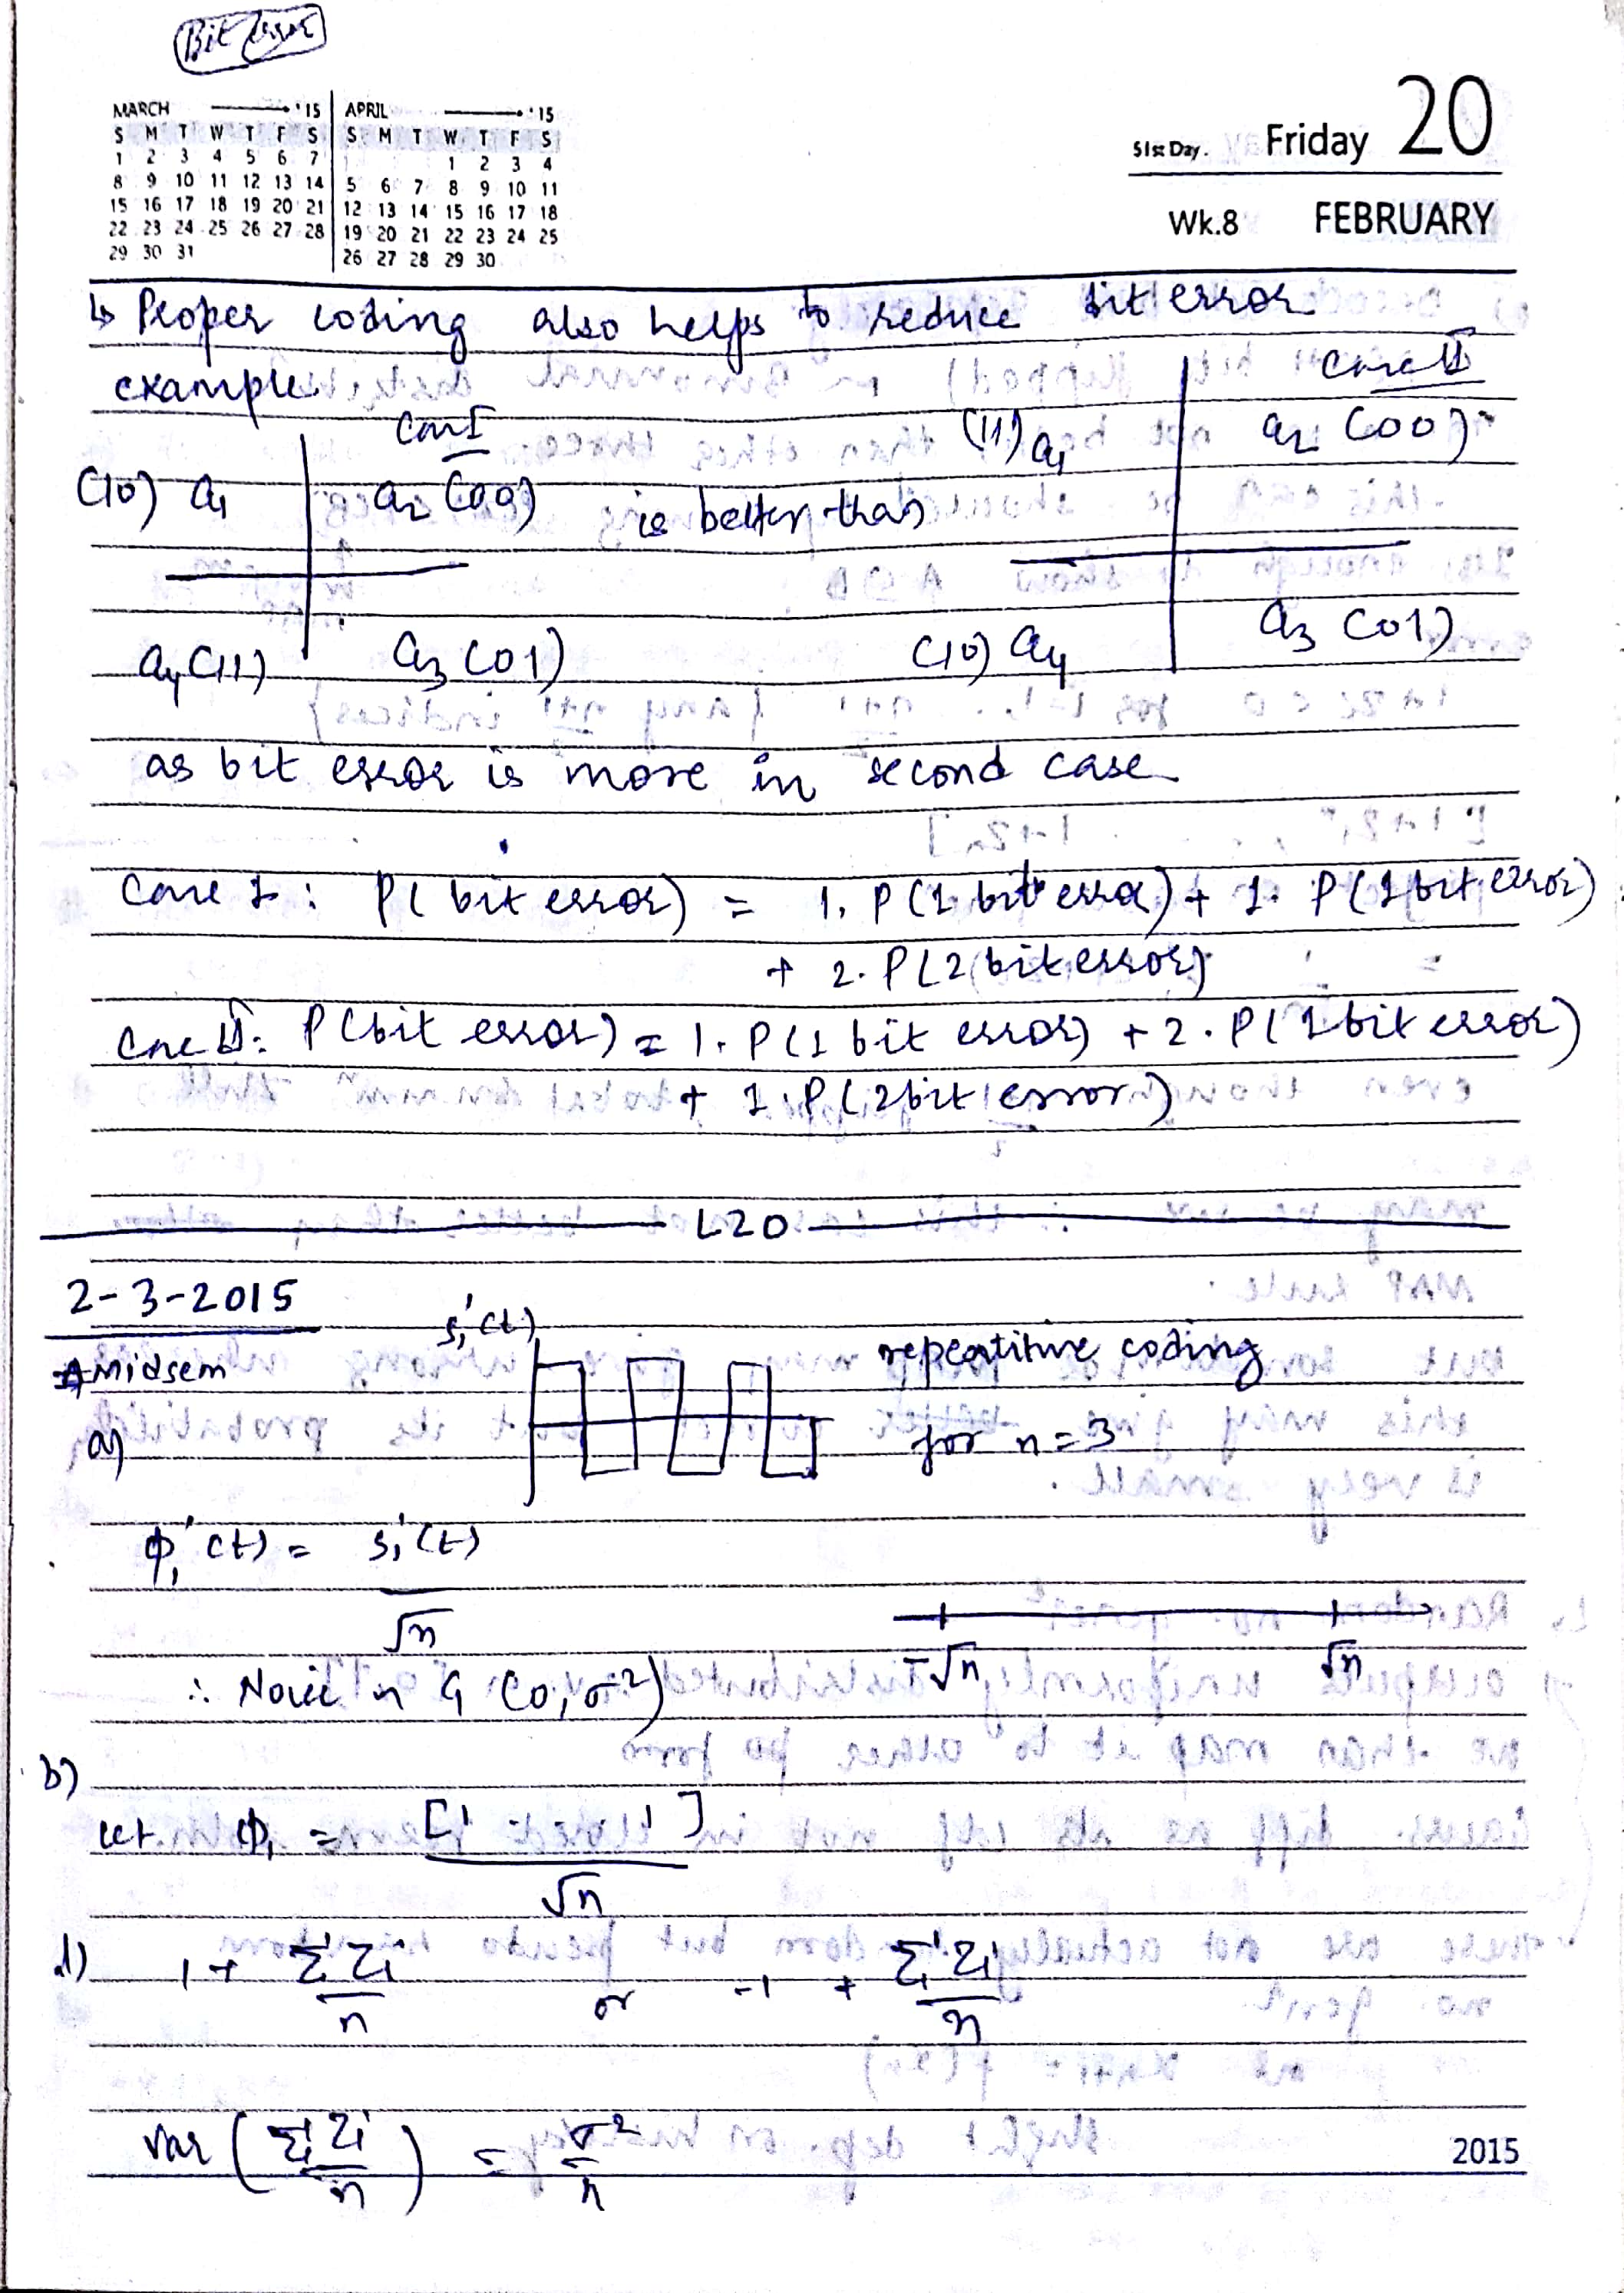 Bit Error
MARCH '15 APRIL '15
S M T W T F S S M T W T F S
1 2 3 4 5 6 7 1 2 3 4
8 9 10 11 12 13 14 5 6 7 8 9 10 11
15 16 17 18 19 20 21 12 13 14 15 16 17 18
22 23 24 25 26 27 28 19 20 21 22 23 24 25
29 30 31 26 27 28 29 30
51st Day. Friday 20
Wk.8 FEBRUARY
↳ Proper coding also helps to reduce bit error
example
Case I Case II
(10) a1 a2 (00) is better than (11) a1 a2 (00)
a4 (11) a3 (01) (10) a4 a3 (01)
as bit error is more in second case
Case I : P( bit error) = 1. P(1 bit error) + 1. P(1 bit error)
+ 2. P(2 bit error)
Case II: P(bit error) = 1. P(1 bit error) + 2. P(1 bit error)
+ 1. P(2 bit error)
L20
2-3-2015
# Midsem
s1'(t) repeatitive coding
a) for n=3
ϕ1'(t) = s1'(t)
√n
-√n √n
∴ Noise ~ G (0, σ²)
b)
let ϕ1 = [1 . . . . 1]
√n
d) 1 + ΣZi/n or -1 + ΣZi/n
var (ΣZi/n) = σ²/n
2015